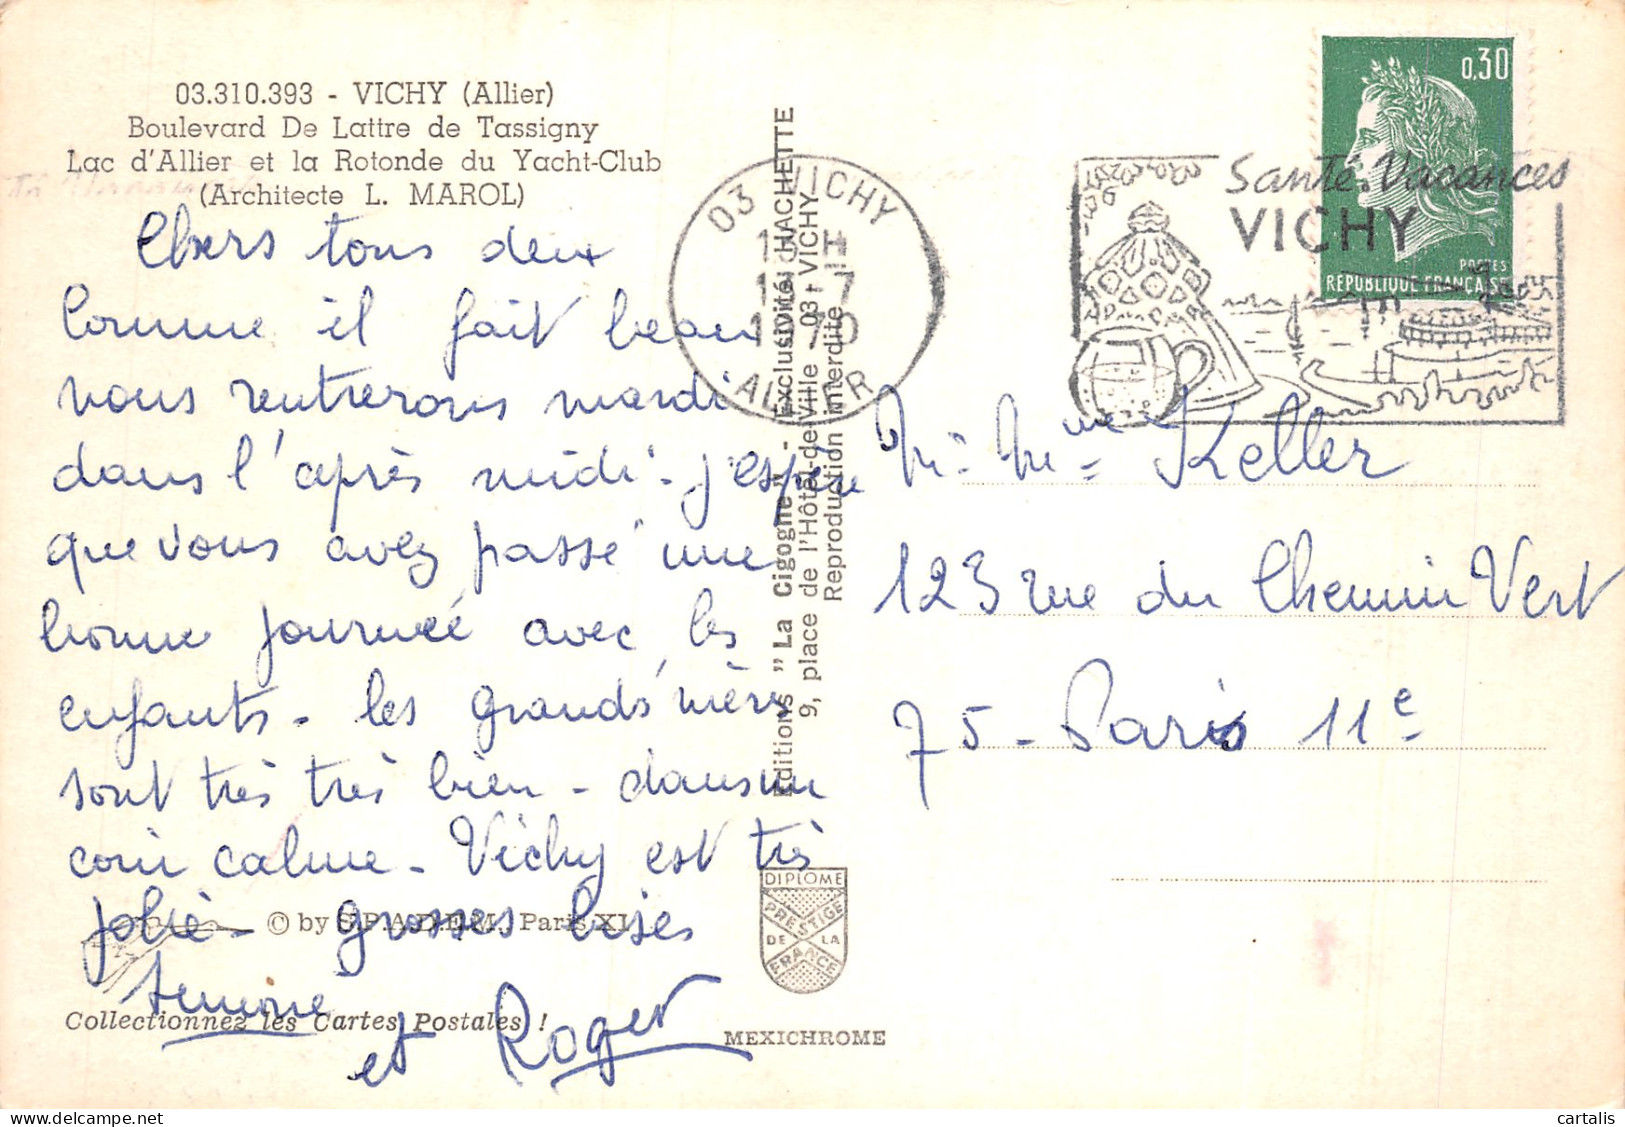 03.310.393 - VICHY (Allier)
Boulevard De Lattre de Tassigny
Lac d'Allier et la Rotonde du Yacht-Club
(Architecte L. MAROL)
Chers tous deux
Comme il fait beau
nous rentrerons mardi
dans l'après midi - j'espère
que vous avez passé une
bonne journée avec les
enfants - les grands'mères
sont très très bien - dans un
coin calme - Vichy est très
jolie - grosses bises
Simone
et Roger
© by S.P.A.D.E.M. Paris XI
Collectionnez les Cartes Postales !
Editions "La Cigogne" - Exclusivité HACHETTE
9, place de l'Hôtel-de-Ville - 03 - VICHY
Reproduction interdite
DIPLOME
PRESTIGE
DE LA
FRANCE
MEXICHROME
03 VICHY
H
7
1970
ALLIER
Santé. Vacances
VICHY
0,30
POSTES
RÉPUBLIQUE FRANÇAISE
M. Mme Keller
123 rue du Chemin Vert
75 - Paris 11e
cartalis